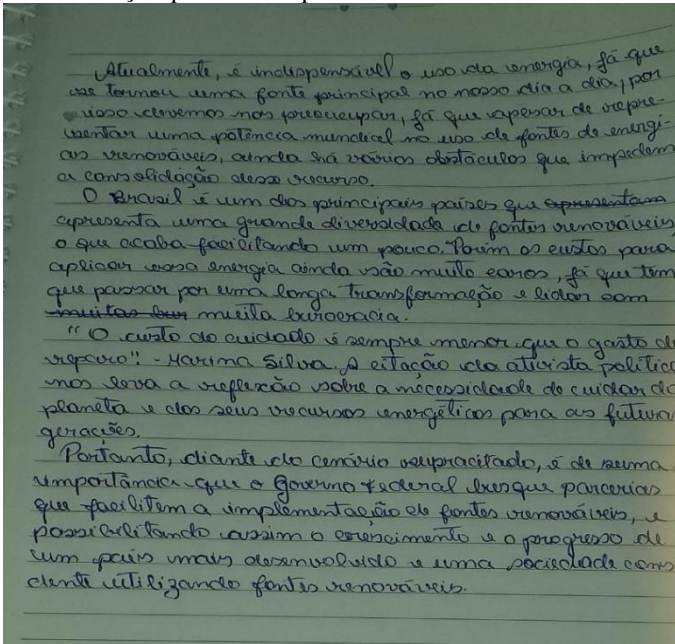 Atualmente, é indispensável o uso da energia, já que
se tornou uma fonte principal no nosso dia a dia, por
isso devemos nos preocupar, já que apesar de repre-
sentar uma potência mundial no uso de fontes de energi-
as renováveis, ainda há vários obstáculos que impedem
a consolidação desse recurso.
O Brasil é um dos principais países que apresentam
apresenta uma grande diversidade de fontes renováveis,
o que acaba facilitando um pouco. Porém os custos para
aplicar essa energia ainda são muito caros, já que tem
que passar por uma longa transformação e lidar com
muitas bur muita burocracia.
"O custo do cuidado é sempre menor que o gasto do
reparo". - Marina Silva. A citação da ativista política
nos leva a reflexão sobre a necessidade de cuidar do
planeta e dos seus recursos energéticos para as futura
gerações.
Portanto, diante do cenário supracitado, é de suma
importância que o Governo Federal busque parcerias
que facilitem a implementação de fontes renováveis, e
possibilitando assim o crescimento e o progresso de
um país mais desenvolvido e uma sociedade cons
ciente utilizando fontes renováveis.